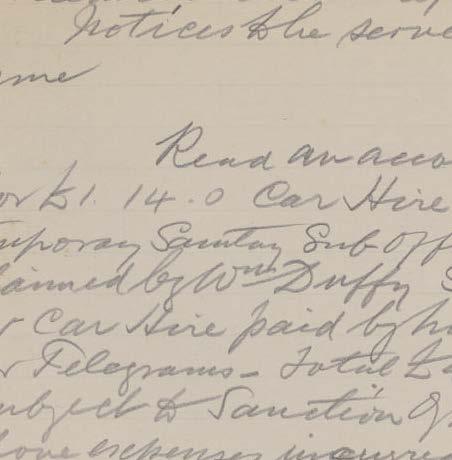 Notices to be serve
me
Read an acco
for £1. 14. 0 Car Hire
mporay Sanitay Sub Off
laimed by Wm Duffy S
Car Hire paid by h
r Telegrams - Total £
ubject to Sanction of
bove expenses incurre